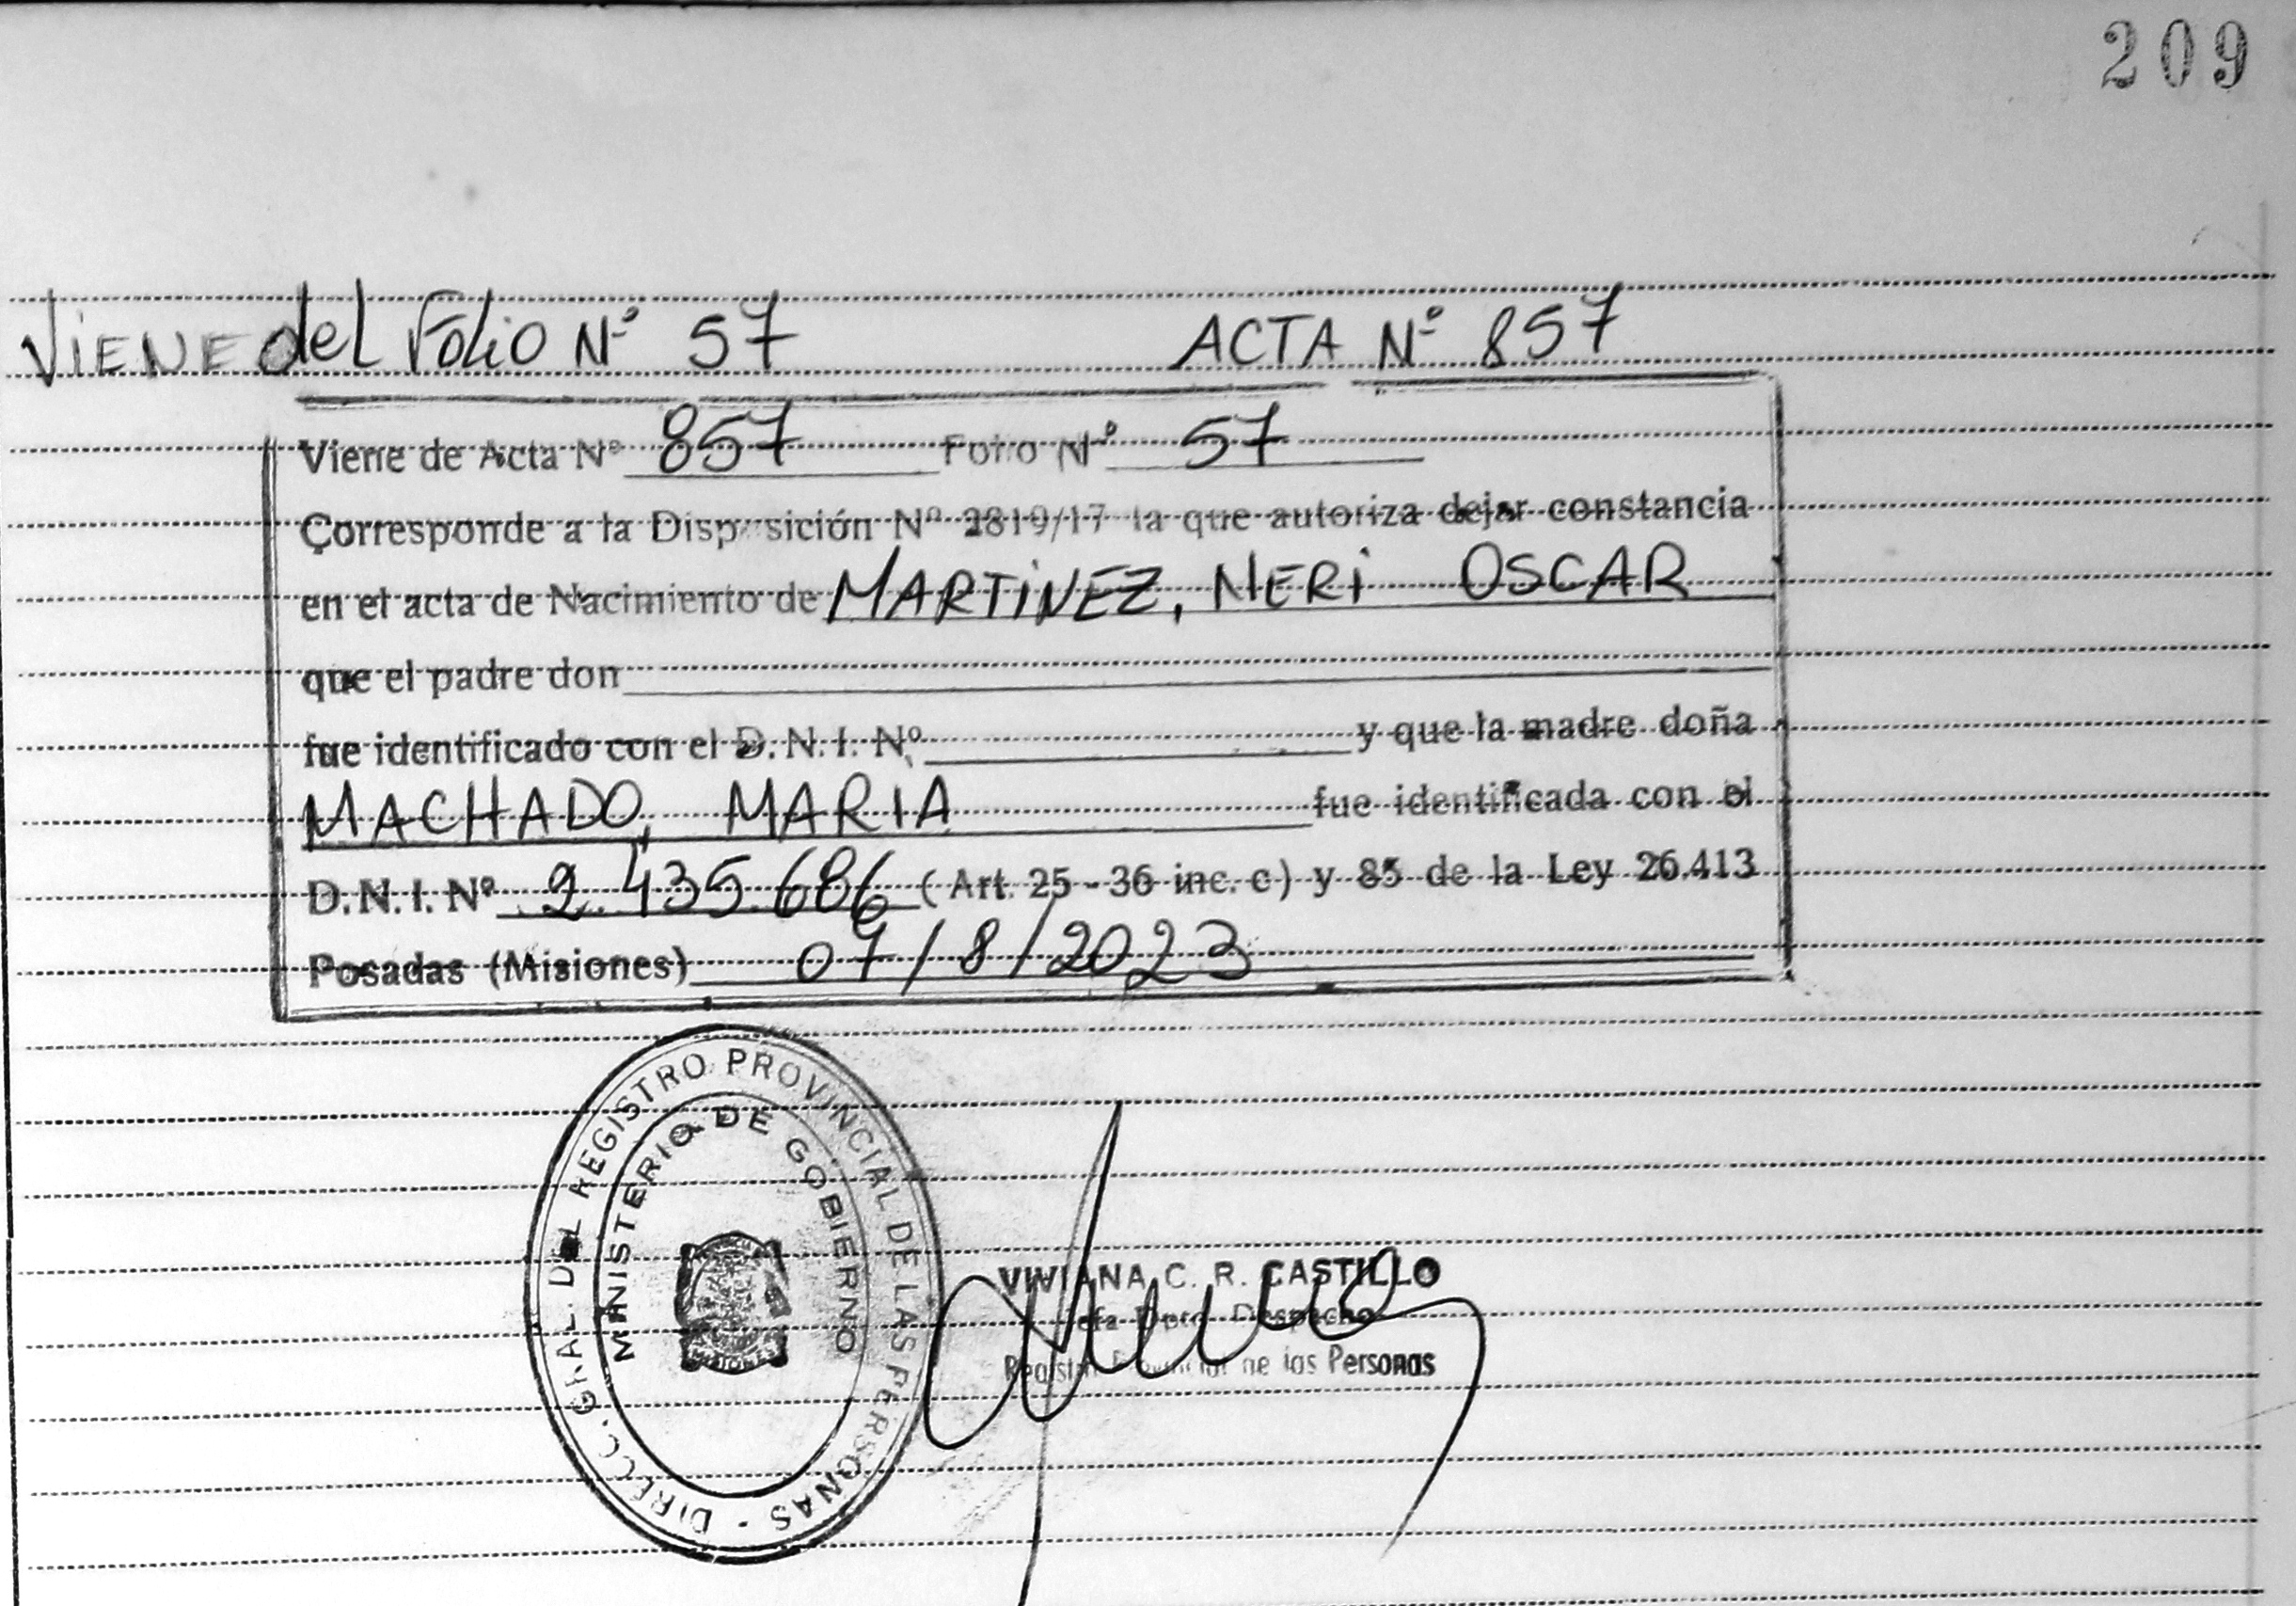 209
VIENE del Folio Nº 57 ACTA Nº 857
Viene de Acta Nº 857 Folio Nº 57
Corresponde a la Disposición Nº 2819/17 la que autoriza dejar constancia
en el acta de Nacimiento de MARTINEZ, NERI OSCAR
que el padre don
fue identificado con el D.N.I. Nº y que la madre doña
MACHADO, MARIA fue identificada con el
D.N.I. Nº 2.435.686 (Art. 25 - 36 inc. c) y 85 de la Ley 26.413
Posadas (Misiones) 07/8/2023
DIRECC. GRAL. DEL REGISTRO PROVINCIAL DE LAS PERSONAS -
MINISTERIO DE GOBIERNO
MISIONES
VIVIANA C. R. CASTILLO
Jefa Dpto. Despacho
Registro Provincial de las Personas